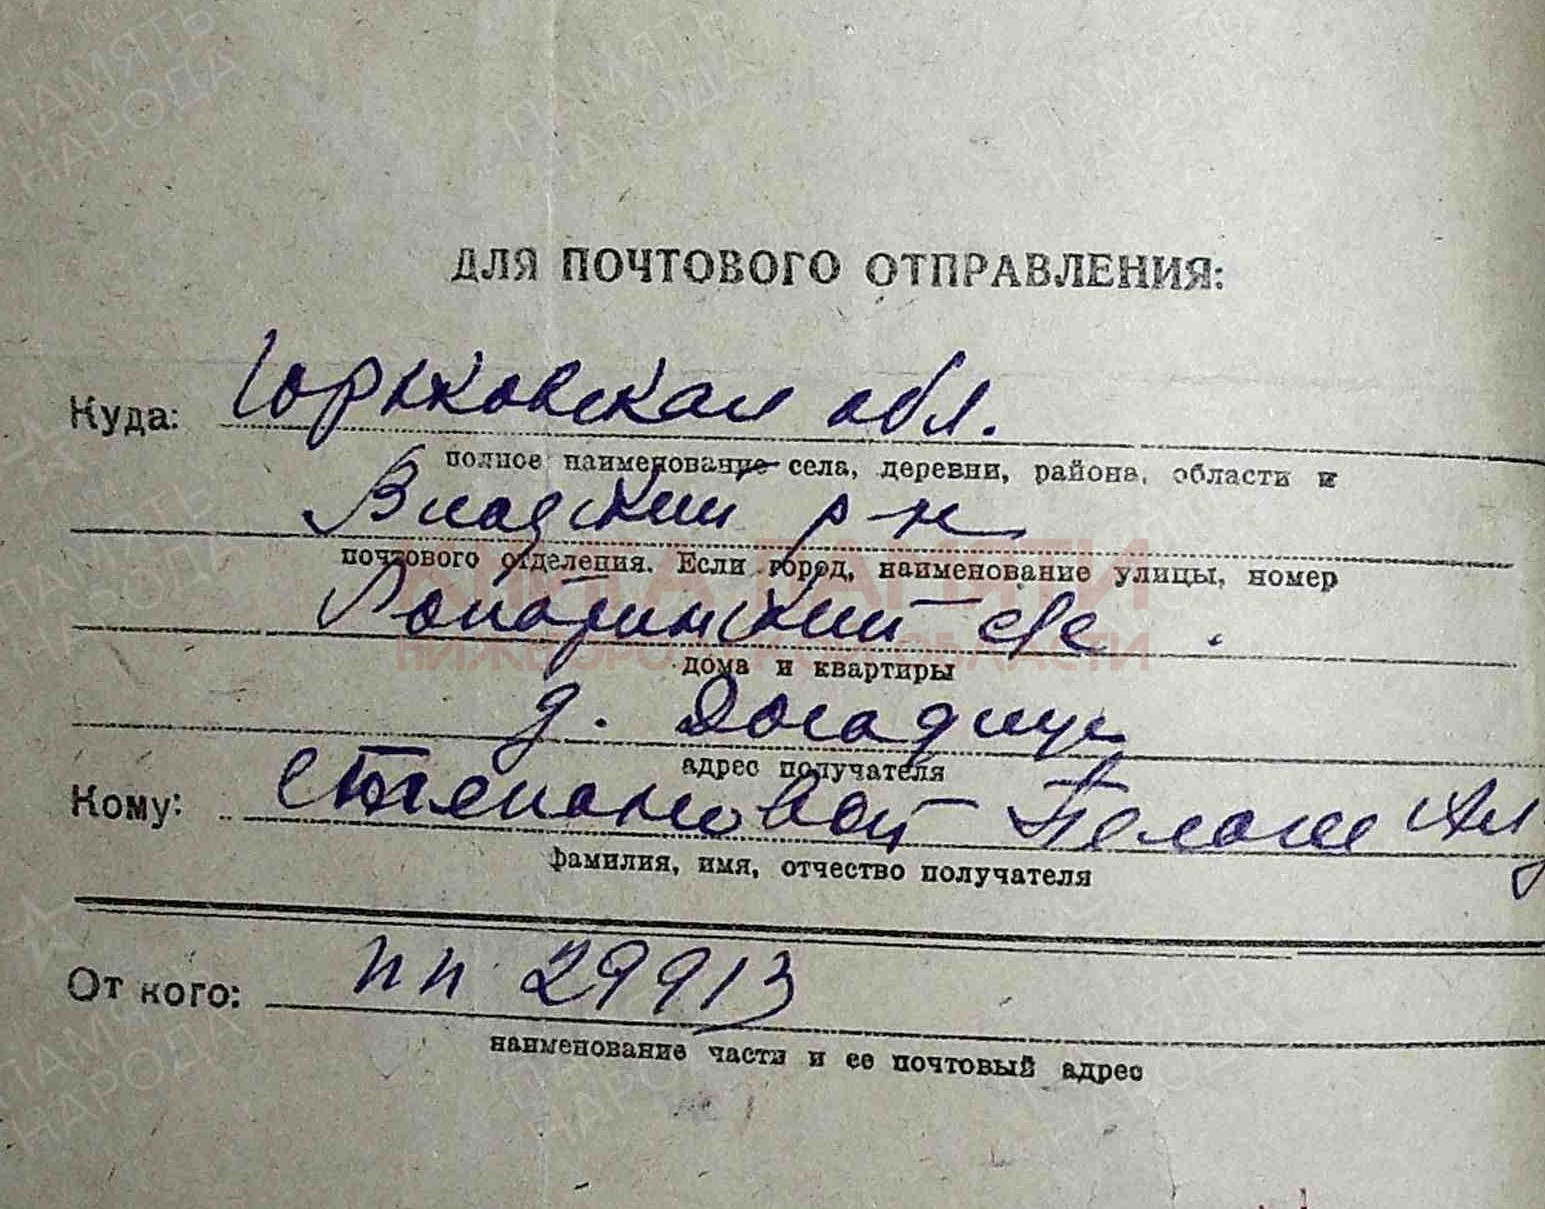 ДЛЯ ПОЧТОВОГО ОТПРАВЛЕНИЯ:
Куда: Горьковская обл.
полное наименование села, деревни, района, области и
Вадский р-н
почтового отделения. Если город, наименование улицы, номер
Лопатинский с/с.
дома и квартиры
д.
адрес получателя
Кому: Степановой Пелагее
фамилия, имя, отчество получателя
От кого: пп 29913
наименование части и ее почтовый адрес
КНИГА ПАМЯТИ
НИЖЕГОРОДСКОЙ ОБЛАСТИ
ПАМЯТЬ
НАРОДА